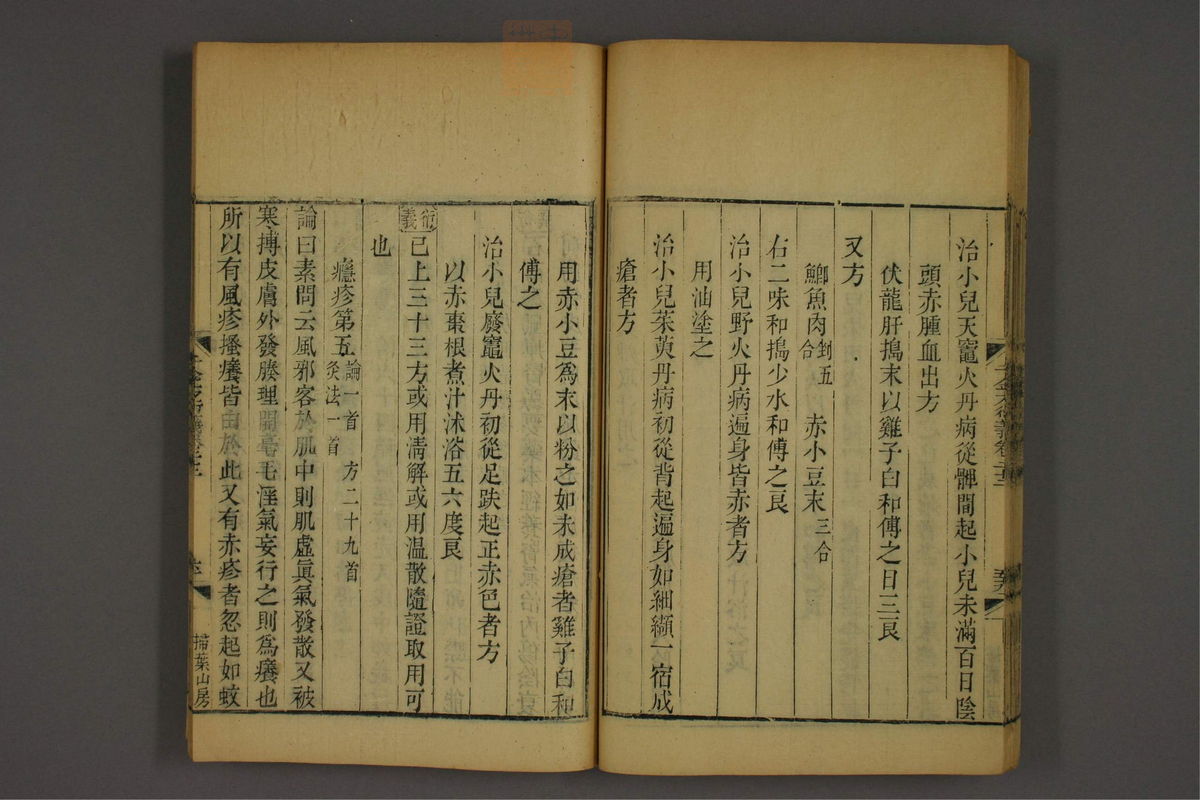 治小兒天竈火丹病從髀間起小兒未滿百日陰
頭赤腫血出方
伏龍肝搗末以雞子白和傅之日三良
又方
鯽魚肉剉五合 赤小豆末三合
右二味和搗少水和傅之良
治小兒野火丹病遍身皆赤者方
用油塗之
治小兒茱萸丹病初從背起遍身如細纈一宿成
瘡者方
用赤小豆為末以粉之如未成瘡者雞子白和
傅之
治小兒廢竈火丹初從足趺起正赤色者方
以赤棗根煮汁沐浴五六度良
衍義
已上三十三方或用清解或用温散隨證取用可
也
癮疹第五論一首 方二十九首 灸法一首
論曰素問云風邪客於肌中則肌虛眞氣發散又被
寒搏皮膚外發腠理開毫毛淫氣妄行之則爲癢也
所以有風疹搔癢皆由於此又有赤疹者忽起如蚊
掃葉山房